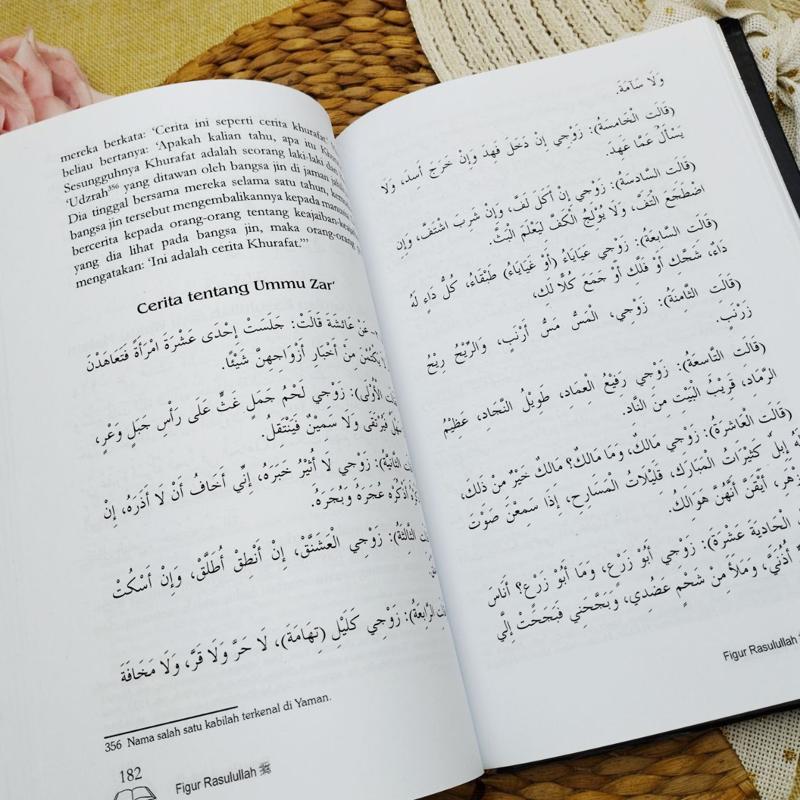 mereka berkata: 'Cerita ini seperti cerita khurafat'
beliau bertanya: 'Apakah kalian tahu, apa itu
Sesungguhnya Khurafat adalah seorang laki-laki
'Udzrah³⁵⁶ yang ditawan oleh bangsa jin di jaman
Dia tinggal bersama mereka selama satu tahun,
bangsa jin tersebut mengembalikannya kepada
bercerita kepada orang-orang tentang
yang dia lihat pada bangsa jin, maka orang-orang
mengatakan: 'Ini adalah cerita Khurafat.'"
Cerita tentang Ummu Zar'
عَنْ عَائشَةَ قَالَتْ: جَلَسَتْ إِحْدَى عَشْرَةَ امْرَأَةً فَتَعَاهَدْنَ
يَكْتُمْنَ مِنْ أَخْبَارِ أَزْوَاجِهِنَّ شَيْئًا.
الْأُوْلَى): زَوْجِي لَحْمُ جَمَلٍ غَثٍّ عَلَى رَأْسِ جَبَلٍ وَعْرٍ،
فَيُرْتَقَى وَلَا سَمِيْنٌ فَيَنْتَقِلُ.
الثَّانِيَةُ): زَوْجِي لَا أُثِيْرُ خَبَرَهُ، إِنِّي أَخَافُ أَنْ لَا أَذَرَهُ، إِنْ
أَذْكُرْهُ عُجَرَهُ وَبُجَرَهُ.
الثَّالِثَةُ): زَوْجِي الْعَشَنَّقْ، إِنْ أَنْطِقْ أُطَلَّقْ، وَإِنْ أَسْكُتْ
الرَّابِعَةُ): زَوْجِي كَلَيْلِ (تِهَامَةَ)، لَا حَرَّ وَلَا قَرَّ، وَلَا مَخَافَةَ
356 Nama salah satu kabilah terkenal di Yaman.
182
Figur Rasulullah ﷺ
وَلَا سَآمَةَ.
(قَالَت الْخَامِسَةُ): زَوْجِي إِنْ دَخَلَ فَهِدَ وَإِنْ خَرَجَ أَسِدَ، وَلَا
يَسْأَلُ عَمَّا عَهِدَ.
(قَالَت السَّادِسَةُ): زَوْجِي إِنْ أَكَلَ لَفَّ، وَإِنْ شَرِبَ اشْتَفَّ، وَإِنِ
اضْطَجَعَ الْتَفَّ، وَلَا يُوْلِجُ الْكَفَّ لِيَعْلَمَ الْبَثَّ.
(قَالَت السَّابِعَةُ): زَوْجِي عَيَايَاءُ (أَوْ غَيَايَاءُ) طَبَقَاءُ، كُلُّ دَاءٍ لَهُ
دَاءٌ، شَجَّكِ أَوْ فَلَّكِ أَوْ جَمَعَ كُلًّا لَكِ،
(قَالَت الثَّامِنَةُ): زَوْجِي، الْمَسُّ مَسُّ أَرْنَبٍ، وَالرِّيْحُ رِيْحُ
زَرْنَبٍ.
(قَالَت التَّاسِعَةُ): زَوْجِي رَفِيْعُ الْعِمَادِ، طَوِيْلُ النِّجَادِ، عَظِيْمُ
الرَّمَادِ، قَرِيْبُ الْبَيْتِ مِنَ النَّادِ.
(قَالَت الْعَاشِرَةُ): زَوْجِي مَالِكٌ، وَمَا مَالِكٌ؟ مَالِكٌ خَيْرٌ مِنْ ذَلِكَ،
لَهُ إِبِلٌ كَثِيْرَاتُ الْمَبَارِكِ، قَلِيْلَاتُ الْمَسَارِحِ، إِذَا سَمِعْنَ صَوْتَ
أَيْقَنَّ أَنَّهُنَّ هَوَالِكُ.
الْحَادِيَةَ عَشْرَةَ): زَوْجِي أَبُوْ زَرْعٍ، وَمَا أَبُوْ زَرْعٍ؟ أَنَاسَ
أُذُنَيَّ، وَمَلَأَ مِنْ شَحْمٍ عَضُدَيَّ، وَبَجَّحَنِي فَبَجِحَتْ إِلَيَّ
Figur Rasulullah